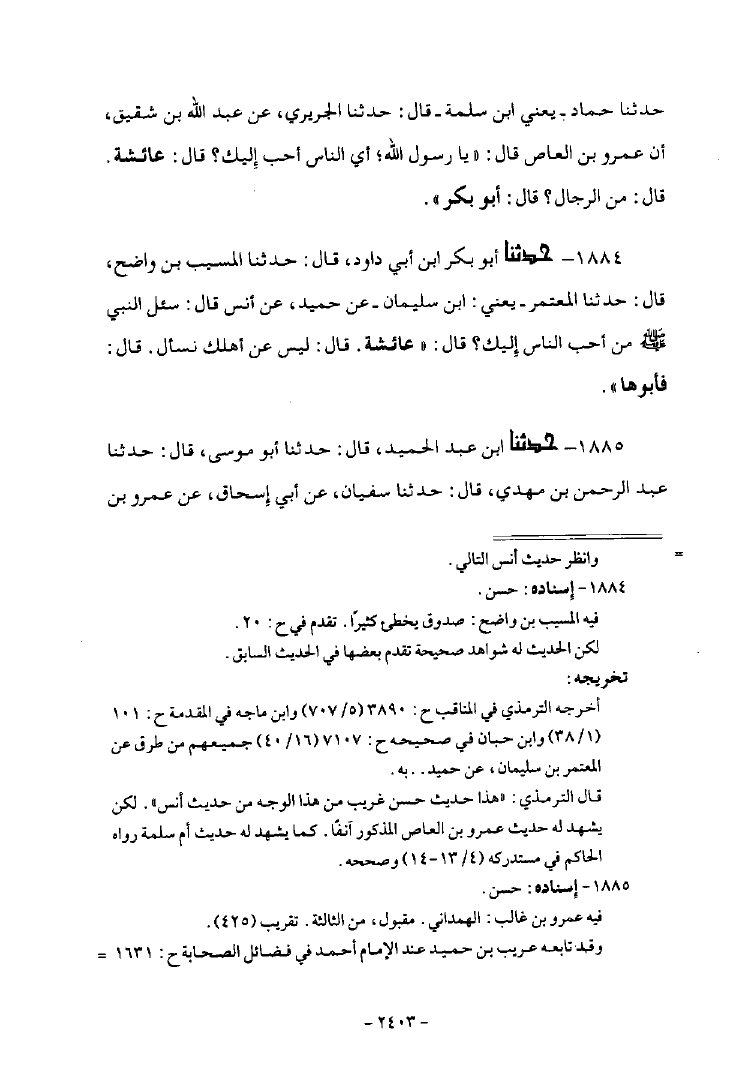 حدثنا حماد ـ يعني ابن سلمة ـ قال: حدثنا الجريري، عن عبد الله بن شقيق،
أن عمرو بن العاص قال: «يا رسول الله؛ أي الناس أحب إليك؟ قال: عائشة.
قال: من الرجال؟ قال: أبو بكر».
١٨٨٤ـ حدثنا أبو بكر ابن أبي داود، قال: حدثنا المسيب بن واضح،
قال: حدثنا المعتمر ـ يعني: ابن سليمان ـ عن حميد، عن أنس قال: سئل النبي
ﷺ من أحب الناس إليك؟ قال: «عائشة. قال: ليس عن أهلك نسأل. قال:
فأبوها».
١٨٨٥ـ حدثنا ابن عبد الحميد، قال: حدثنا أبو موسى، قال: حدثنا
عبد الرحمن بن مهدي، قال: حدثنا سفيان، عن أبي إسحاق، عن عمرو بن
= وانظر حديث أنس التالي.
١٨٨٤- إسناده: حسن.
فيه المسيب بن واضح: صدوق يخطئ كثيرًا. تقدم في ح: ٢٠.
لكن الحديث له شواهد صحيحة تقدم بعضها في الحديث السابق.
تخريجه:
أخرجه الترمذي في المناقب ح: ٣٨٩٠ (٥/ ٧٠٧) وابن ماجه في المقدمة ح: ١٠١
(١/ ٣٨) وابن حبان في صحيحه ح: ٧١٠٧ (١٦/ ٤٠) جميعهم من طرق عن
المعتمر بن سليمان، عن حميد.. به.
قال الترمذي: «هذا حديث حسن غريب من هذا الوجه من حديث أنس». لكن
يشهد له حديث عمرو بن العاص المذكور آنفًا. كما يشهد له حديث أم سلمة رواه
الحاكم في مستدركه (٤/ ١٣-١٤) وصححه.
١٨٨٥- إسناده: حسن.
فيه عمرو بن غالب: الهمداني. مقبول، من الثالثة. تقريب (٤٢٥).
وقد تابعه عريب بن حميد عند الإمام أحمد في فضائل الصحابة ح: ١٦٣١ =
- ٢٤٠٣ -